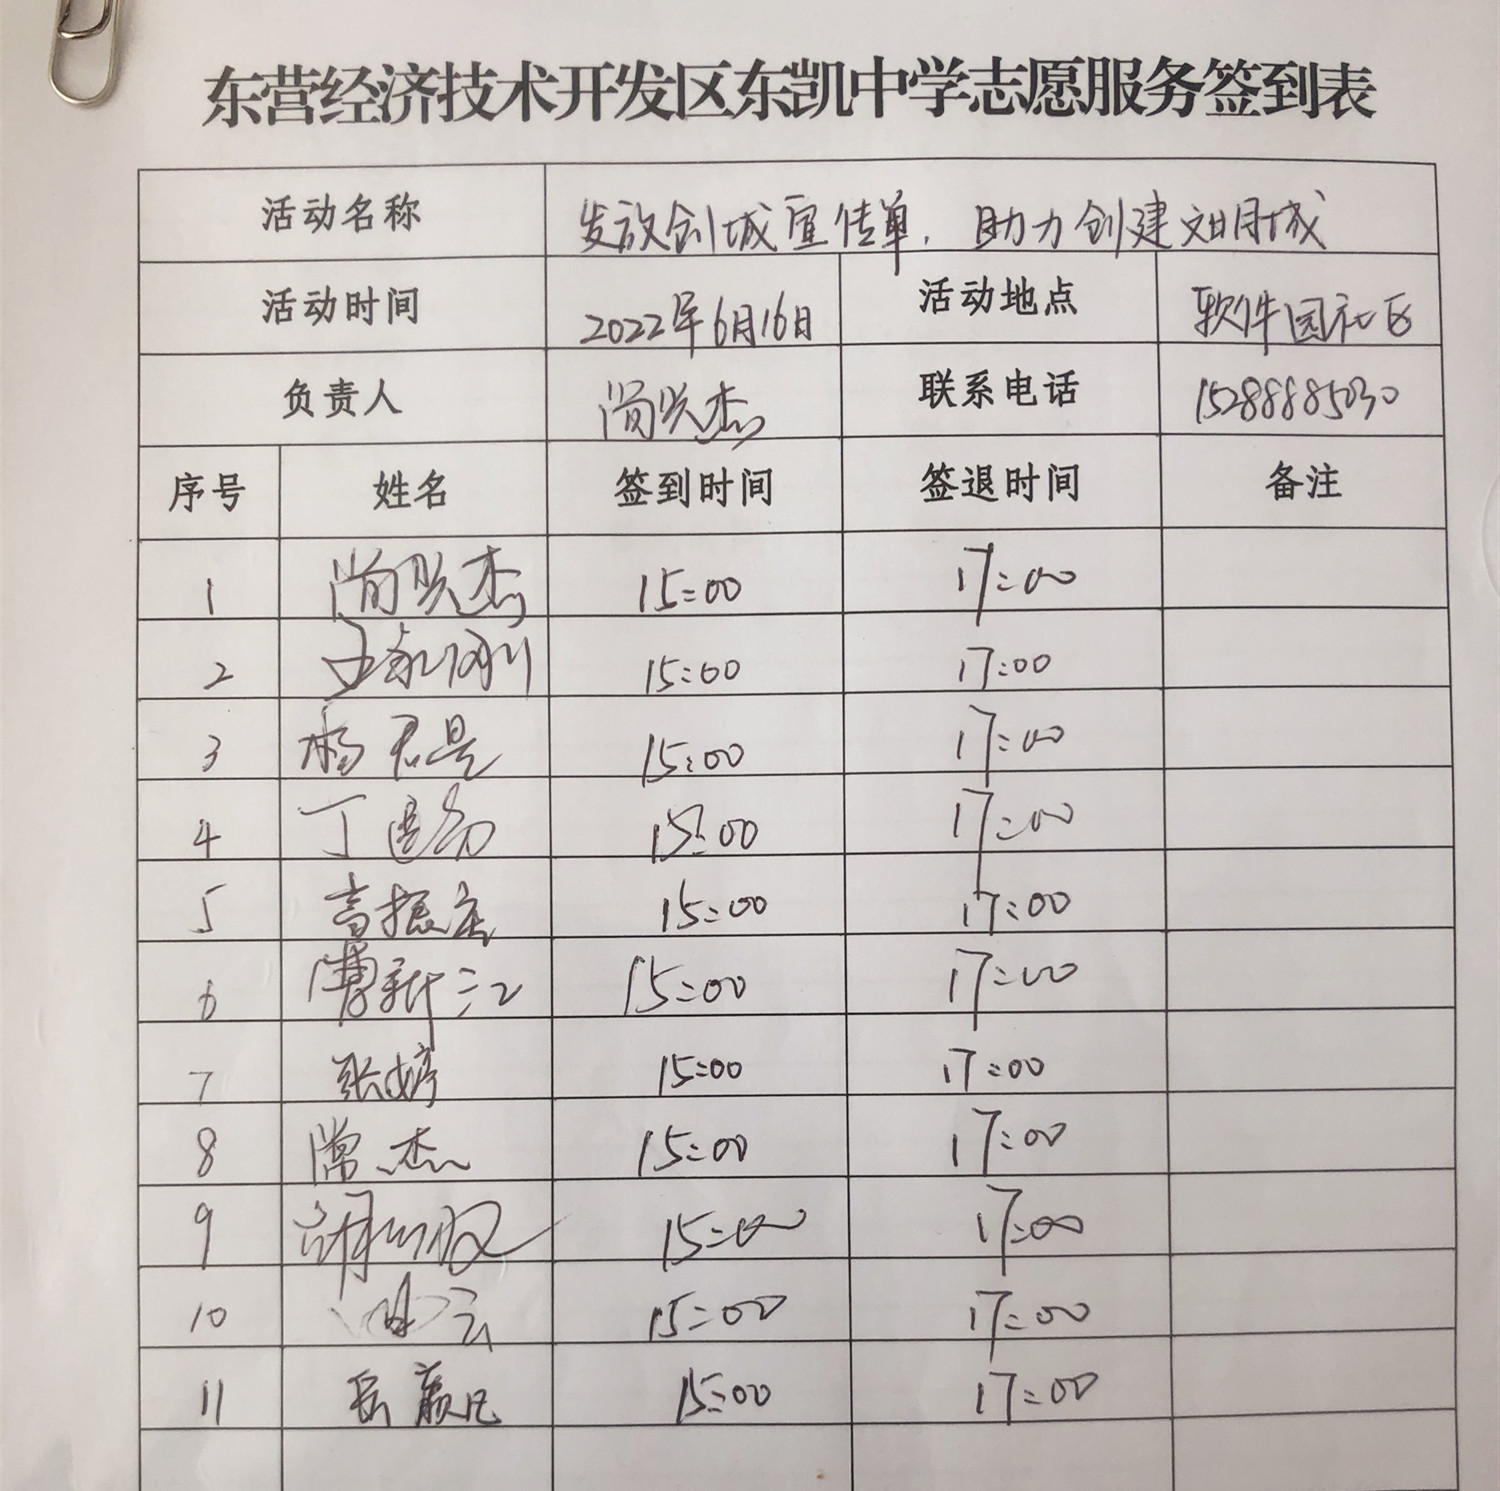 东营经济技术开发区东凯中学志愿服务签到表
活动名称 发放创城宣传单，助力创建文明城
活动时间 2022年6月16日 活动地点 软件园社区
负责人 尚兴杰 联系电话 15288885030
序号 姓名 签到时间 签退时间 备注
1 尚兴杰 15:00 17:00
2 15:00 17:00
3 杨君是 15:00 17:00
4 丁 15:00 17:00
5 高振 15:00 17:00
6 曹新江 15:00 17:00
7 张婷 15:00 17:00
8 常杰 15:00 17:00
9 15:00 17:00
10 云 15:00 17:00
11 岳 凡 15:00 17:00